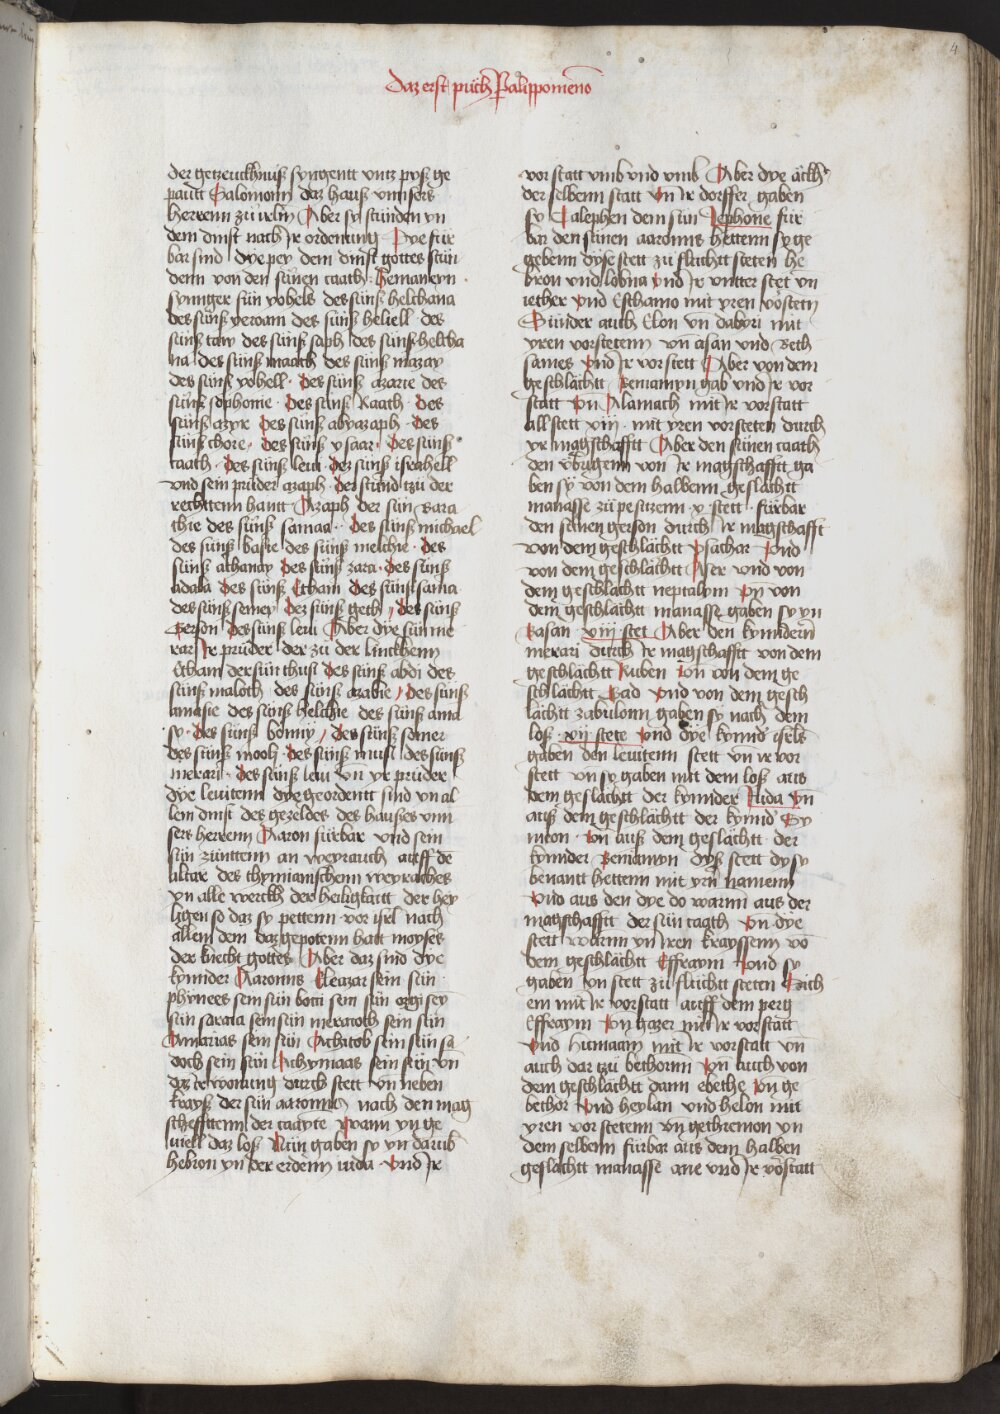 4
Daz erst püch Paralippomenō
der getzeuckhnuß syngentt untz pyß ge
pautt Salomonn daz hauß unnsers
herrenn zü irlm̄ Aber sy stünden yn
dem dinst nach ir ordenung Dye für
bar sind dye pey dem dinst gottes stün
denn von den sünen caath Hemaneyn
synnger sün yohels des sünß helchana
des sünß yeroam des sünß heliell des
sünß taw des sünß saph des sünß helcha
na des sünß maath des sünß mazay
des sünß yohell des sünß azarie des
sünß sophonie des sünß Kaath des
sünß azyr des sünß abyazaph des
sünß chore des sünß ysaar des sünß
caath des sünß leui des sünß israhell
und sein prüder azaph der stünd tzü der
rechttenn hantt Azaph der sün Bara
chie des sünß samaa des sünß michael
des sünß basie des sünß melchie des
sünß athanay des sünß zara des sünß
adaia des sünß Etham des sünß sama
des sünß semey dez sünß geth des sünß
Gerson des sünß leui Aber dye sün me
rari ir prüder der zü der linckhenn
Etham der sün thusi des sünß abdi des
sünß maloch des sünß azabie des sünß
amasie des sünß helchie des sünß ama
sy des sünß bonny des sünß somer
des sünß mooli des sünß musi des sünß
merari des sünß leui vn̄ yr prüder
dye leuitenn dye geordentt sind yn al
lem dinst des gezeldes des haußes unn
sers herrenn Aaron fürbar und sein
sün züntenn an weyrauch auff dē
altar des thymianischenn weyraches
yn alle werckh der heiligkaitt der hey
ligen so daz sy pettenn vor isrl nach
allem dem daz gepotenn hatt moyses
der knecht gottes Aber daz sind dye
kynnder Aaronns Eleazar sein sün
phynees sein sün botti sein sün ozgi sey
sün saraia sein sün meraioth sein sün
Amarias sein sün Achitob sein sün sa
doch sein sün Achymaas sein sün vn̄
daz ir wonung durch stett vn̄ neben
krayß der sün aaronns nach den mag
scheffttenn der caayte Wann yn ge
uiell daz loß Nün gaben sy yn darüb
hebron yn der erdenn iuda und ir
vor statt umb und umb Aber dye ackh
der selbenn statt vn̄ ir dorffer gaben
sy Calephen dem sün Jephone für
bar den sünen aaronns hettenn sy ge
gebenn dyse stett zü flüchtt steten he
bron und lobna und ir unter stet vn
iether und Esthamo mit yren vōstetn
Sünder auch Elon vn̄ dabyri mit
yren vorstetenn vn asan und Beth
sames und ir vor stett Aber von dem
geschlächtt Beniamyn gab und ir vor
statt vn̄ Alamach mit ir vorstatt
all stett xiij mit yren vorsteten durch
yr magschafft Aber den sünen caath
den vbrigenn von ir magschafft ga
ben sy von dem halbenn geslächtt
manasse zü pesitzenn x stett fürbar
den sünen gerson durch ir magschafft
von dem geschlächtt ysachar und
von dem geschlächtt Aser und von
dem geschlächtt neptalym vn̄ von
dem geschlächtt manasse gaben sy yn
Basan xiij stet Aber den kynndern
merari durch ir magschafft von dem
geschlächtt Ruben vn̄ von dem ge
schlächtt Gad und von dem gesch
lächtt zabulonn gaben sy nach dem
loß xij stete und dye kynnd isrls
gaben den leuitenn stett vn̄ ir vor
stett vn sy gaben mit dem loß aus
dem geslächtt der kynnder Juda vn̄
auß dem geschlächtt der kynnd Sy
meon vn̄ auß dem geslächtt der
kynnder Beniamyn dyß stett dy sy
benantt hettenn mit yrn̄ namenn
Und aus den dye do warnn aus der
magschafft der sün caath vn̄ dye
stett warnn yn iren krayssenn vō
dem geschlächtt Effraym und sy
gaben yn stett zü flüchtt steten Sich
em mit ir vorstatt auff dem perg
Effraym vn̄ gazer mit ir vorstatt
Und humaam mit ir vorstatt vn̄
auch dar tzü bethornn vn̄ auch von
dem geschlächtt dann ebethe vn̄ ge
bethor und heylan und helon mit
yren vor stetenn vn gethremon yn
dem selbenn fürbar aus dem halben
geslächtt manasse ane und ir vōrstatt